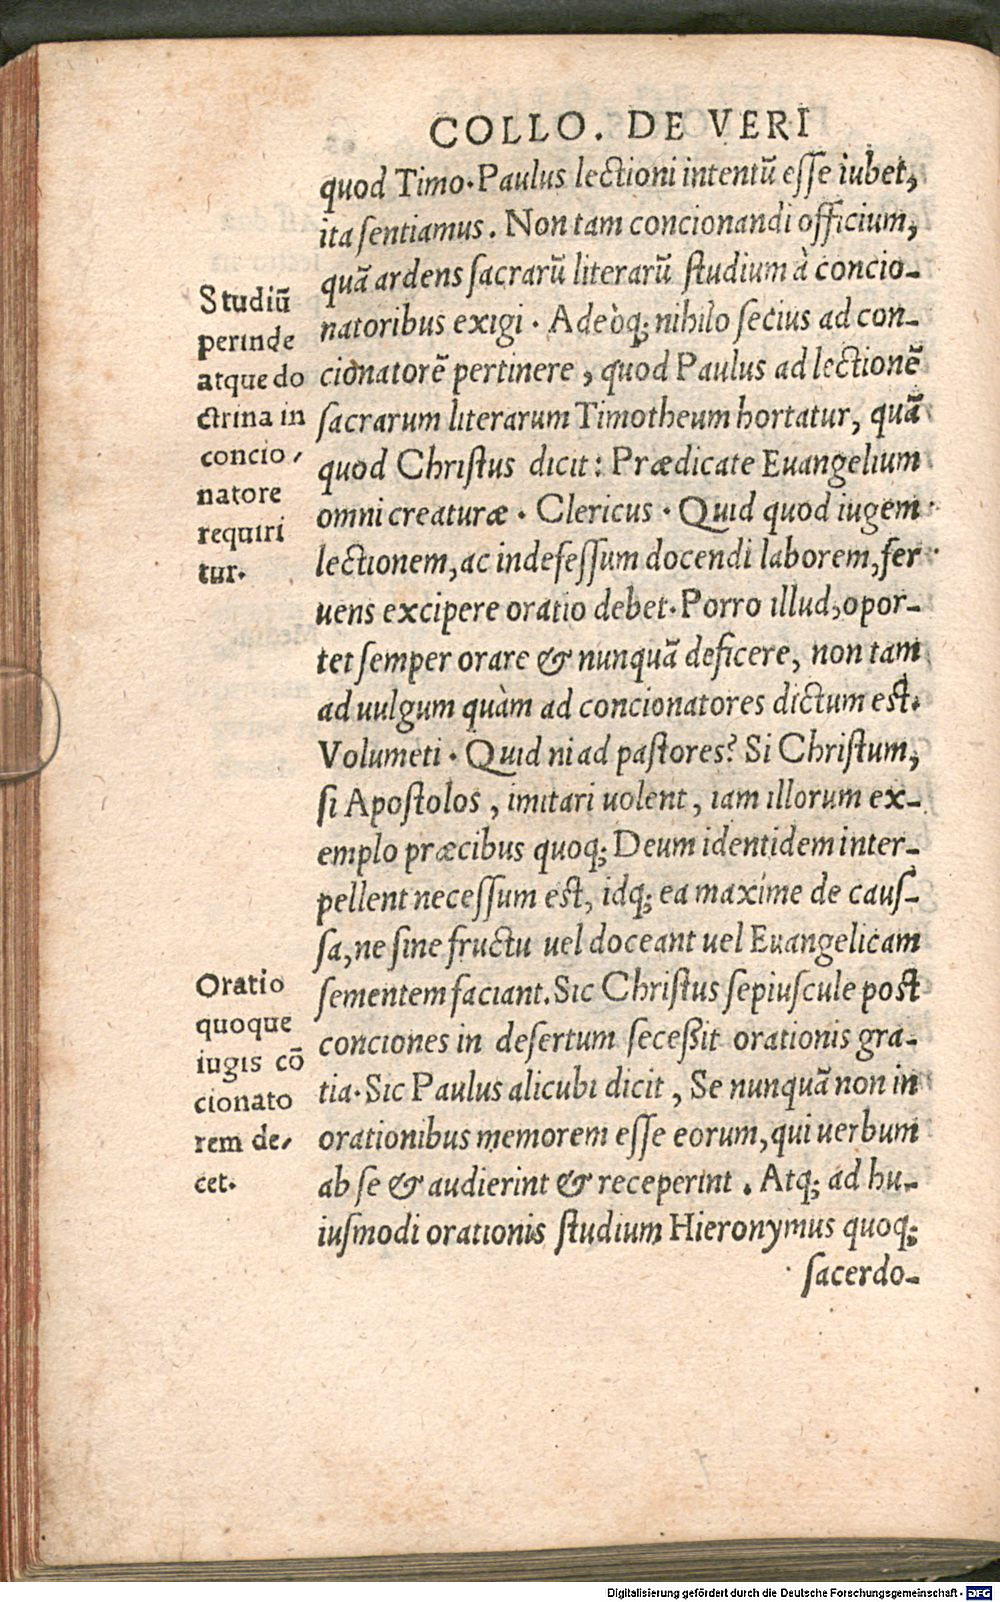 COLLO. DE VERI
quod Timo. Paulus lectioni intentū esse iubet,
ita sentiamus. Non tam concionandi officium,
quā ardens sacrarū literarū studium à concio-
natoribus exigi. Adeòq; nihilo secius ad con-
cionatorē pertinere, quod Paulus ad lectionē
sacrarum literarum Timotheum hortatur, quā
quod Christus dicit: Prædicate Euangelium
omni creaturæ. Clericus. Quid quod iugem
lectionem, ac indefessum docendi laborem, fer
uens excipere oratio debet. Porro illud, opor-
tet semper orare & nunquā deficere, non tam
ad uulgum quàm ad concionatores dictum est.
Volumeti. Quid ni ad pastores? Si Christum,
si Apostolos, imitari uolent, iam illorum ex-
emplo præcibus quoq; Deum identidem inter-
pellent necessum est, idq; ea maxime de caus-
sa, ne sine fructu uel doceant uel Euangelicam
sementem faciant. Sic Christus sepiuscule post
conciones in desertum seceßit orationis gra-
tia. Sic Paulus alicubi dicit, Se nunquā non in
orationibus memorem esse eorum, qui uerbum
ab se & audierint & receperint. Atq; ad hu-
iusmodi orationis studium Hieronymus quoq;
sacerdo-
Studiū
perinde
atque do
ctrina in
concio-
natore
requiri
tur.
Oratio
quoque
iugis cō
cionato
rem de-
cet.
Digitalisierung gefördert durch die Deutsche Forschungsgemeinschaft - DFG